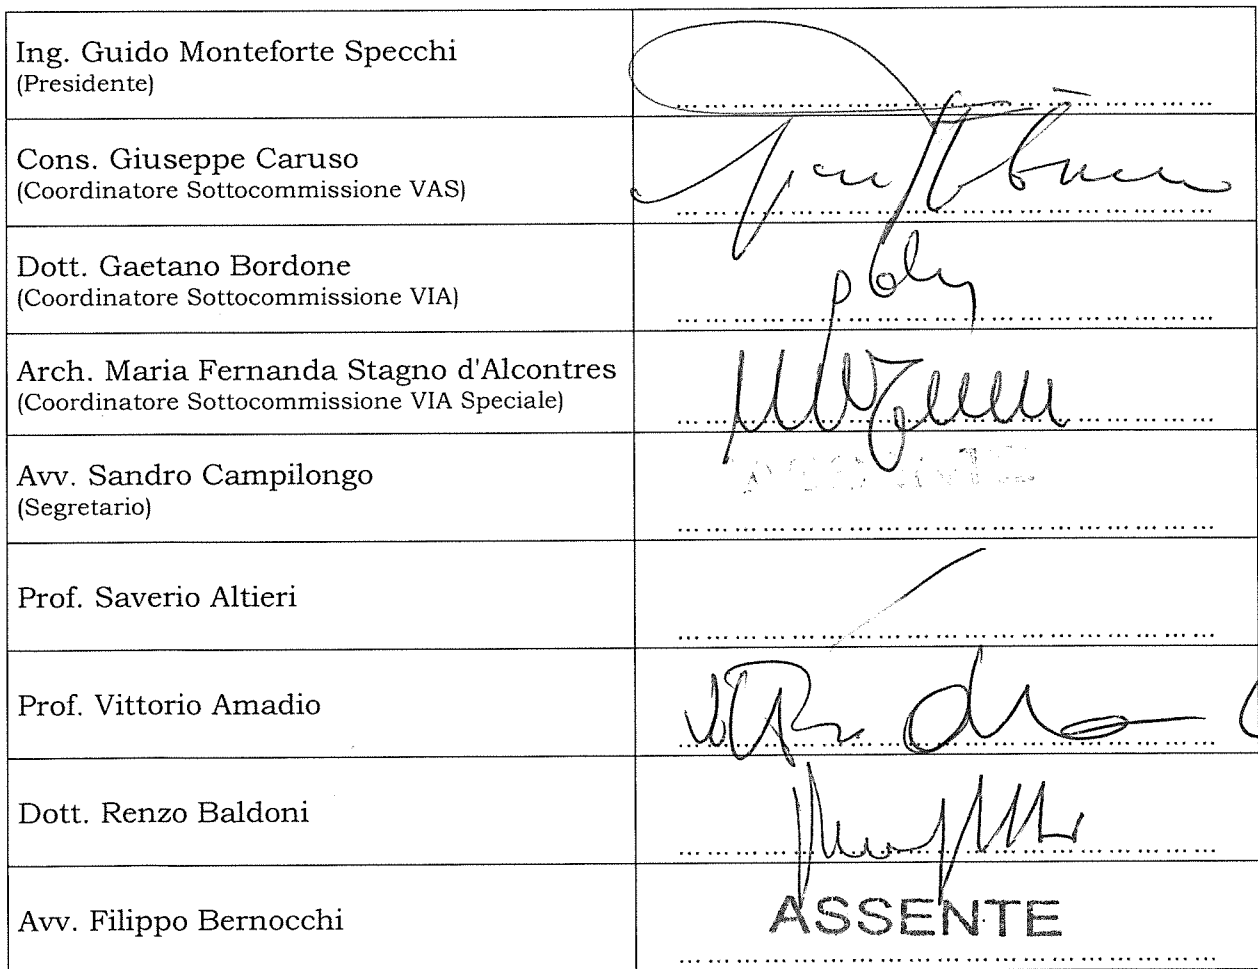 Ing. Guido Monteforte Specchi
(Presidente)
Cons. Giuseppe Caruso
(Coordinatore Sottocommissione VAS)
Dott. Gaetano Bordone
(Coordinatore Sottocommissione VIA)
Arch. Maria Fernanda Stagno d'Alcontres
(Coordinatore Sottocommissione VIA Speciale)
Avv. Sandro Campilongo
(Segretario)
Prof. Saverio Altieri
Prof. Vittorio Amadio
Dott. Renzo Baldoni
Avv. Filippo Bernocchi
ASSENTE